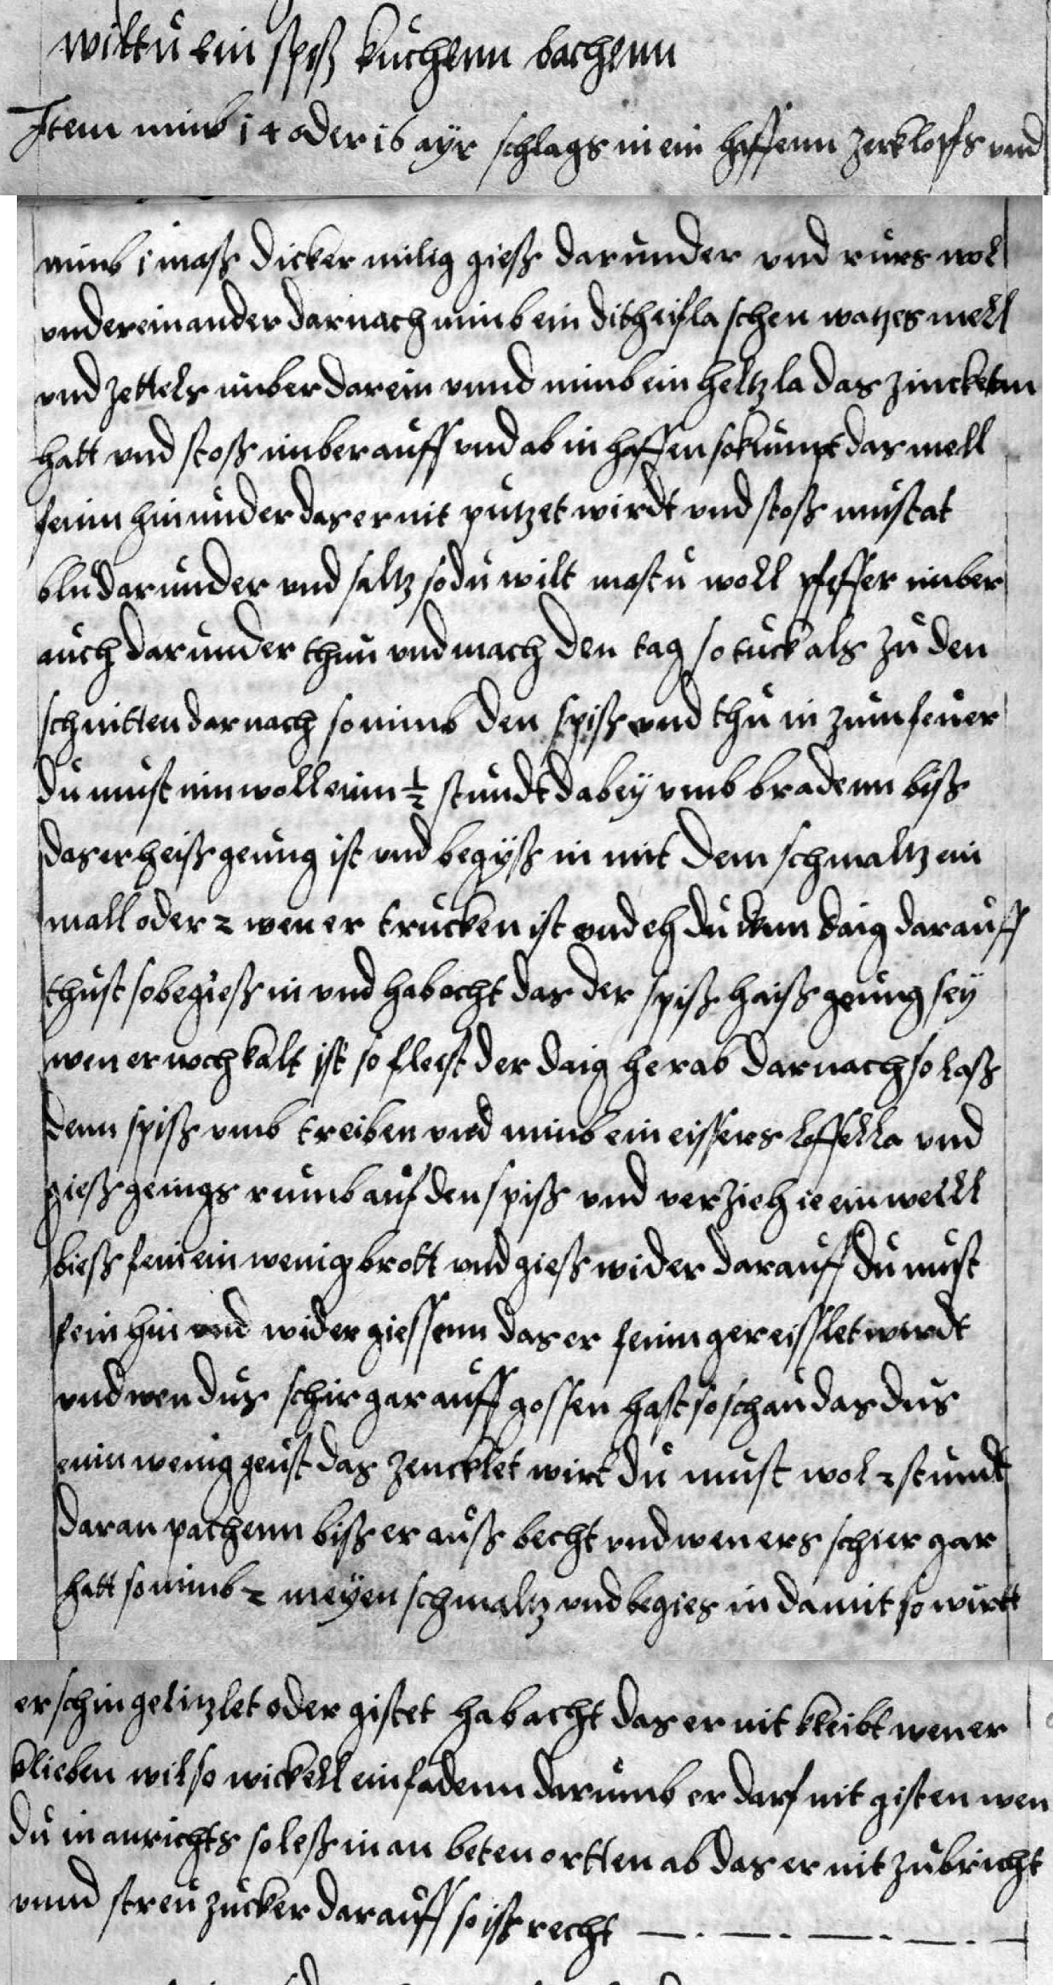 wiltu ein spiß kuchenn bachenn
Item nimb 14 oder 16 ayr schlags in ein haffenn zerklopfs vnd
nimb 1 maß dicker milch gieß darunder vnd rurs wol
vndereinander darnach nimb ein schen watzes mell
vnd zettels imber darein vnnd nimb ein heltzla das zincken
hatt vnd stoß imber auff vnd ab in haffen so kumpt das mell
feinn hinunder das er nit putzet wirdt vnd stoß muscat
blu darunder vnd saltz so du wilt mastu woll pfeffer imber
auch darunder thun vnd mach den tag so tuck als zu den
schnitten darnach so nimb den spiß vnd thu in zum feuer
du must inn woll einn ½ stundt dabey vmb bradenn biß
das er heiß genug ist vnd begyß in mit dem schmaltz ein
mall oder 2 wen er trucken ist vnd eh du denn daig darauff
thust so begieß in vnd hab acht das der spiß haiß genug sey
wen er noch kalt ist so fleist der daig herab darnach so laß
denn spiß vmb treiben vnd nimb ein eissers leffella vnd
gieß geings rumb auf den spiß vnd verzieh ie ein weill
bieß fein ein wenig brott vnd gieß wider darauff du must
fein hin vnd wider giessenn das er feinn gereisslet wirdt
vnd wen dus schir gar auff gossen hast so schau das dus
einn wenig geust das zencklet wirt du must wol 2 stundt
daran pachenn biß er auß becht vnd wen ers schier gar
hatt so nimb 2 meyen schmaltz vnd begies in damit so wirtt
er schin gelitzlet oder gistet hab acht das er nit kleibt wen er
klieben wil so wickell ein fadenn darumb er darf nit gisten wen
du in anrichts so leß in an beten ortten ab das er nit zubricht
vnnd streu zucker darauff so ist recht